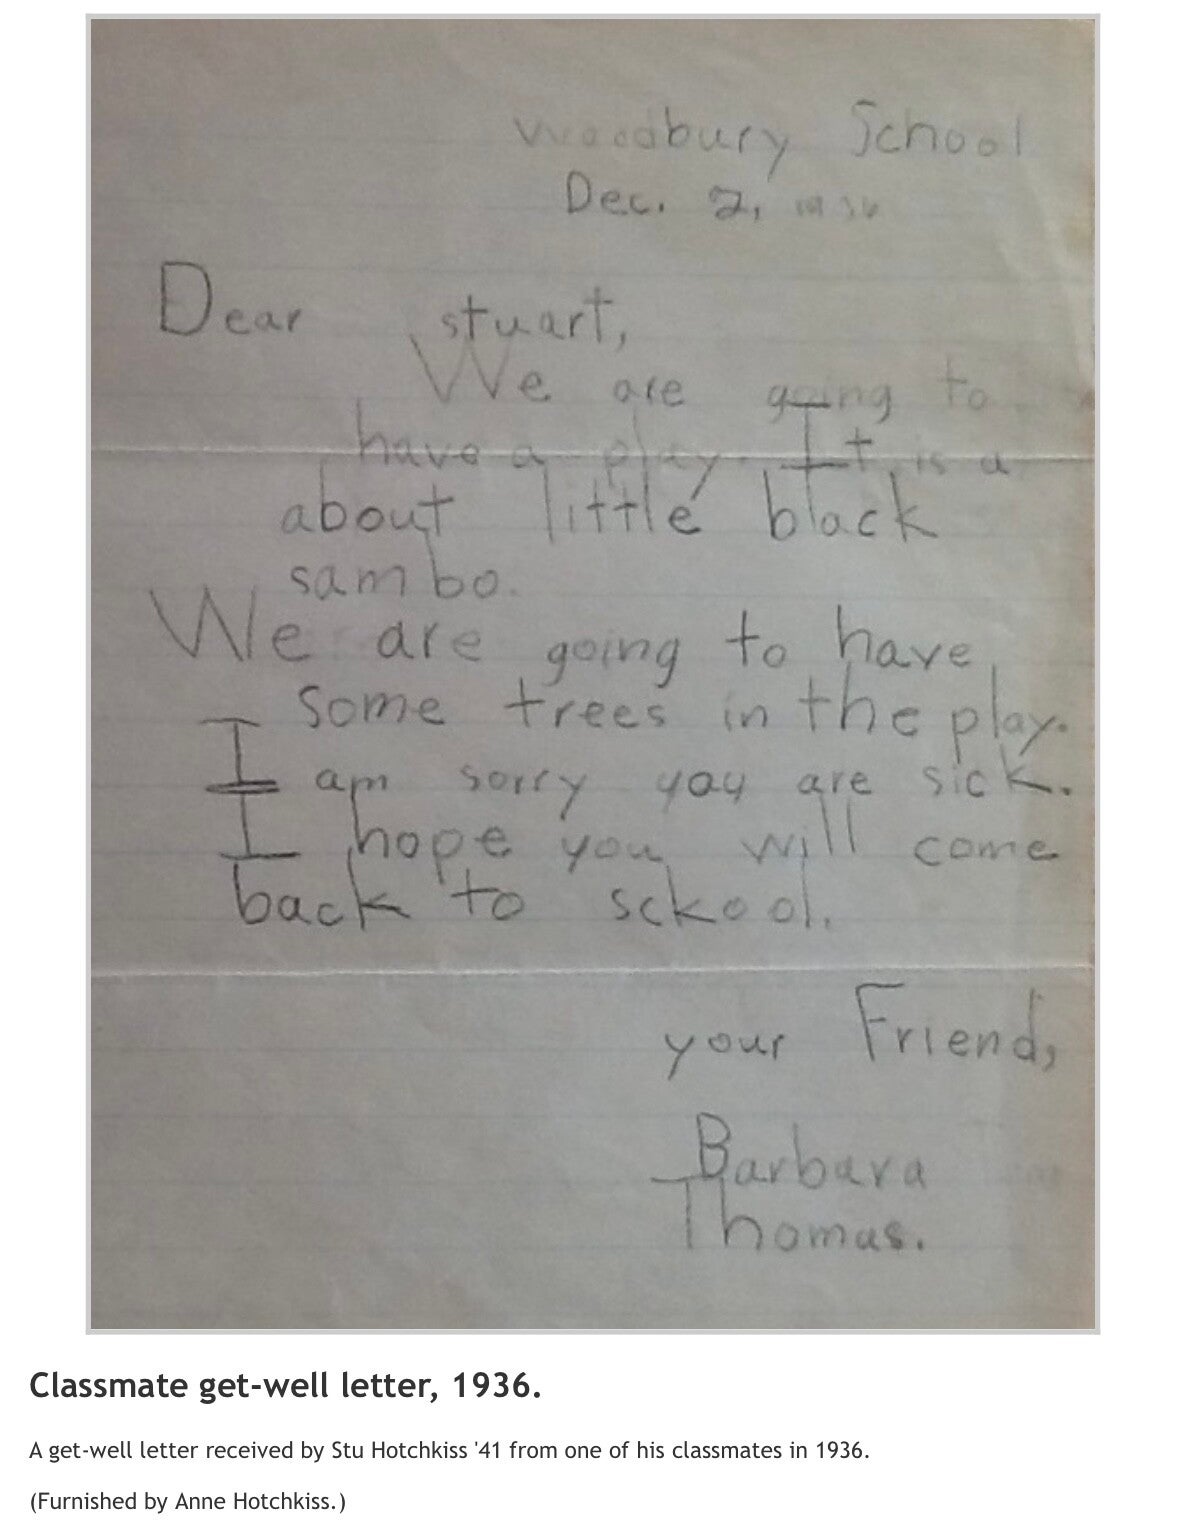 Woodbury School
Dec. 2, 1936
Dear stuart,
We are going to
have a play. It is a
about little black
sambo.
We are going to have
some trees in the play.
I am sorry you are sick.
I hope you will come
back to sckool.
your Friend,
Barbara
Thomas.
Classmate get-well letter, 1936.
A get-well letter received by Stu Hotchkiss '41 from one of his classmates in 1936.
(Furnished by Anne Hotchkiss.)